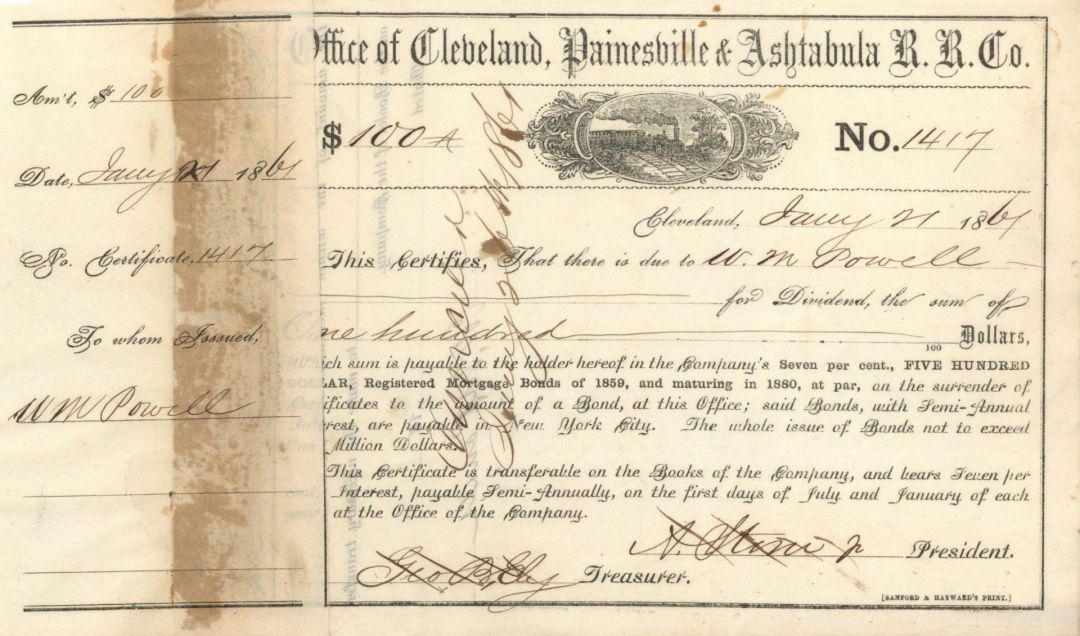 Am't, $ 100
Date, Jany 21 1861
No. Certificate, 1417
To whom Issued,
W M Powell
Office of Cleveland, Painesville & Ashtabula R. R. Co.
$ 100 No. 1417
Cleveland, Jany 21 1861
This Certifies, That there is due to W. M Powell
for Dividend, the sum of
One hundred 100 Dollars,
which sum is payable to the holder hereof in the Company's Seven per cent., FIVE HUNDRED
DOLLAR, Registered Mortgage Bonds of 1859, and maturing in 1880, at par, on the surrender of
ificates to the amount of a Bond, at this Office; said Bonds, with Semi-Annual
Interest, are payable in New York City. The whole issue of Bonds not to exceed
Million Dollars.
This Certificate is transferable on the Books of the Company, and bears Seven per
Interest, payable Semi-Annually, on the first days of July and January of each
at the Office of the Company.
A. Stone Jr President.
Geo B. Ely Treasurer.
[SANFORD & HAYWARD'S PRINT.]